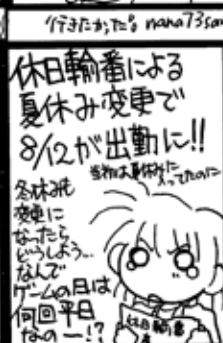 行きたかった。nana73san
休日輪番による
夏休み変更で
8/12が出勤に!!
当初は夏休みに
入ってたのに
冬休みも
変更に
なったら
どうしよう…
なんで
ゲームの日は
何回平日
なのー!?
休日輪番
表